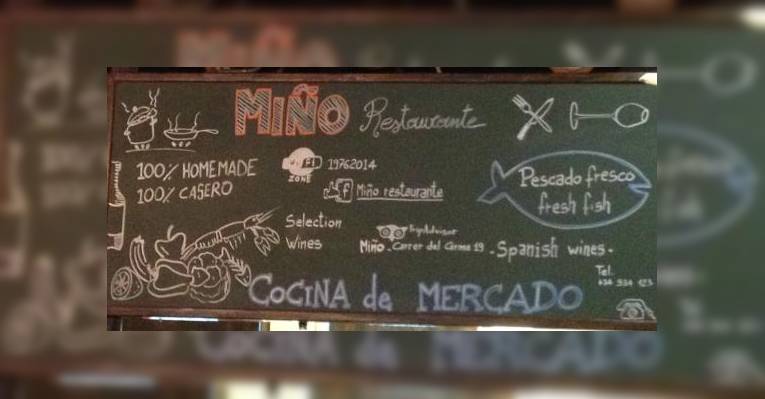 MIÑO Restaurante
100% HOMEMADE
100% CASERO
WiFi ZONE 19762014
f Miño restaurante
Pescado fresco
fresh fish
Selection
Wines
TripAdvisor
Miño - Carrer del Carme 19
- Spanish wines -
Tel.
COCINA de MERCADO